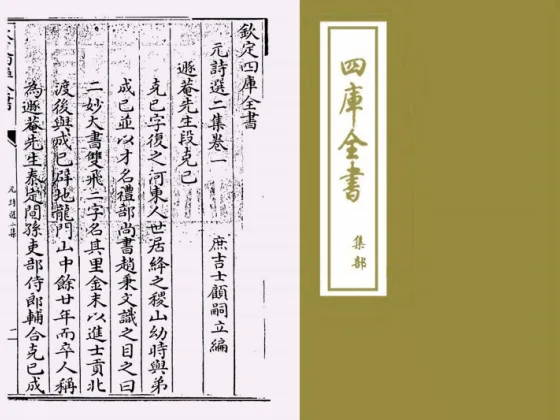 欽定四庫全書
元詩選二集卷一
庶吉士顧嗣立編
遯菴先生段克已
克已字復之河東人世居絳之稷山幼時與弟
成已並以才名禮部尚書趙秉文識之目之曰
二妙大書雙飛二字名其里金末以進士貢北
渡後與成已辟地龍門山中餘廿年而卒人稱
為遯菴先生泰定間孫吏部侍郎輔合克已成
元詩選二集
四庫全書
集部